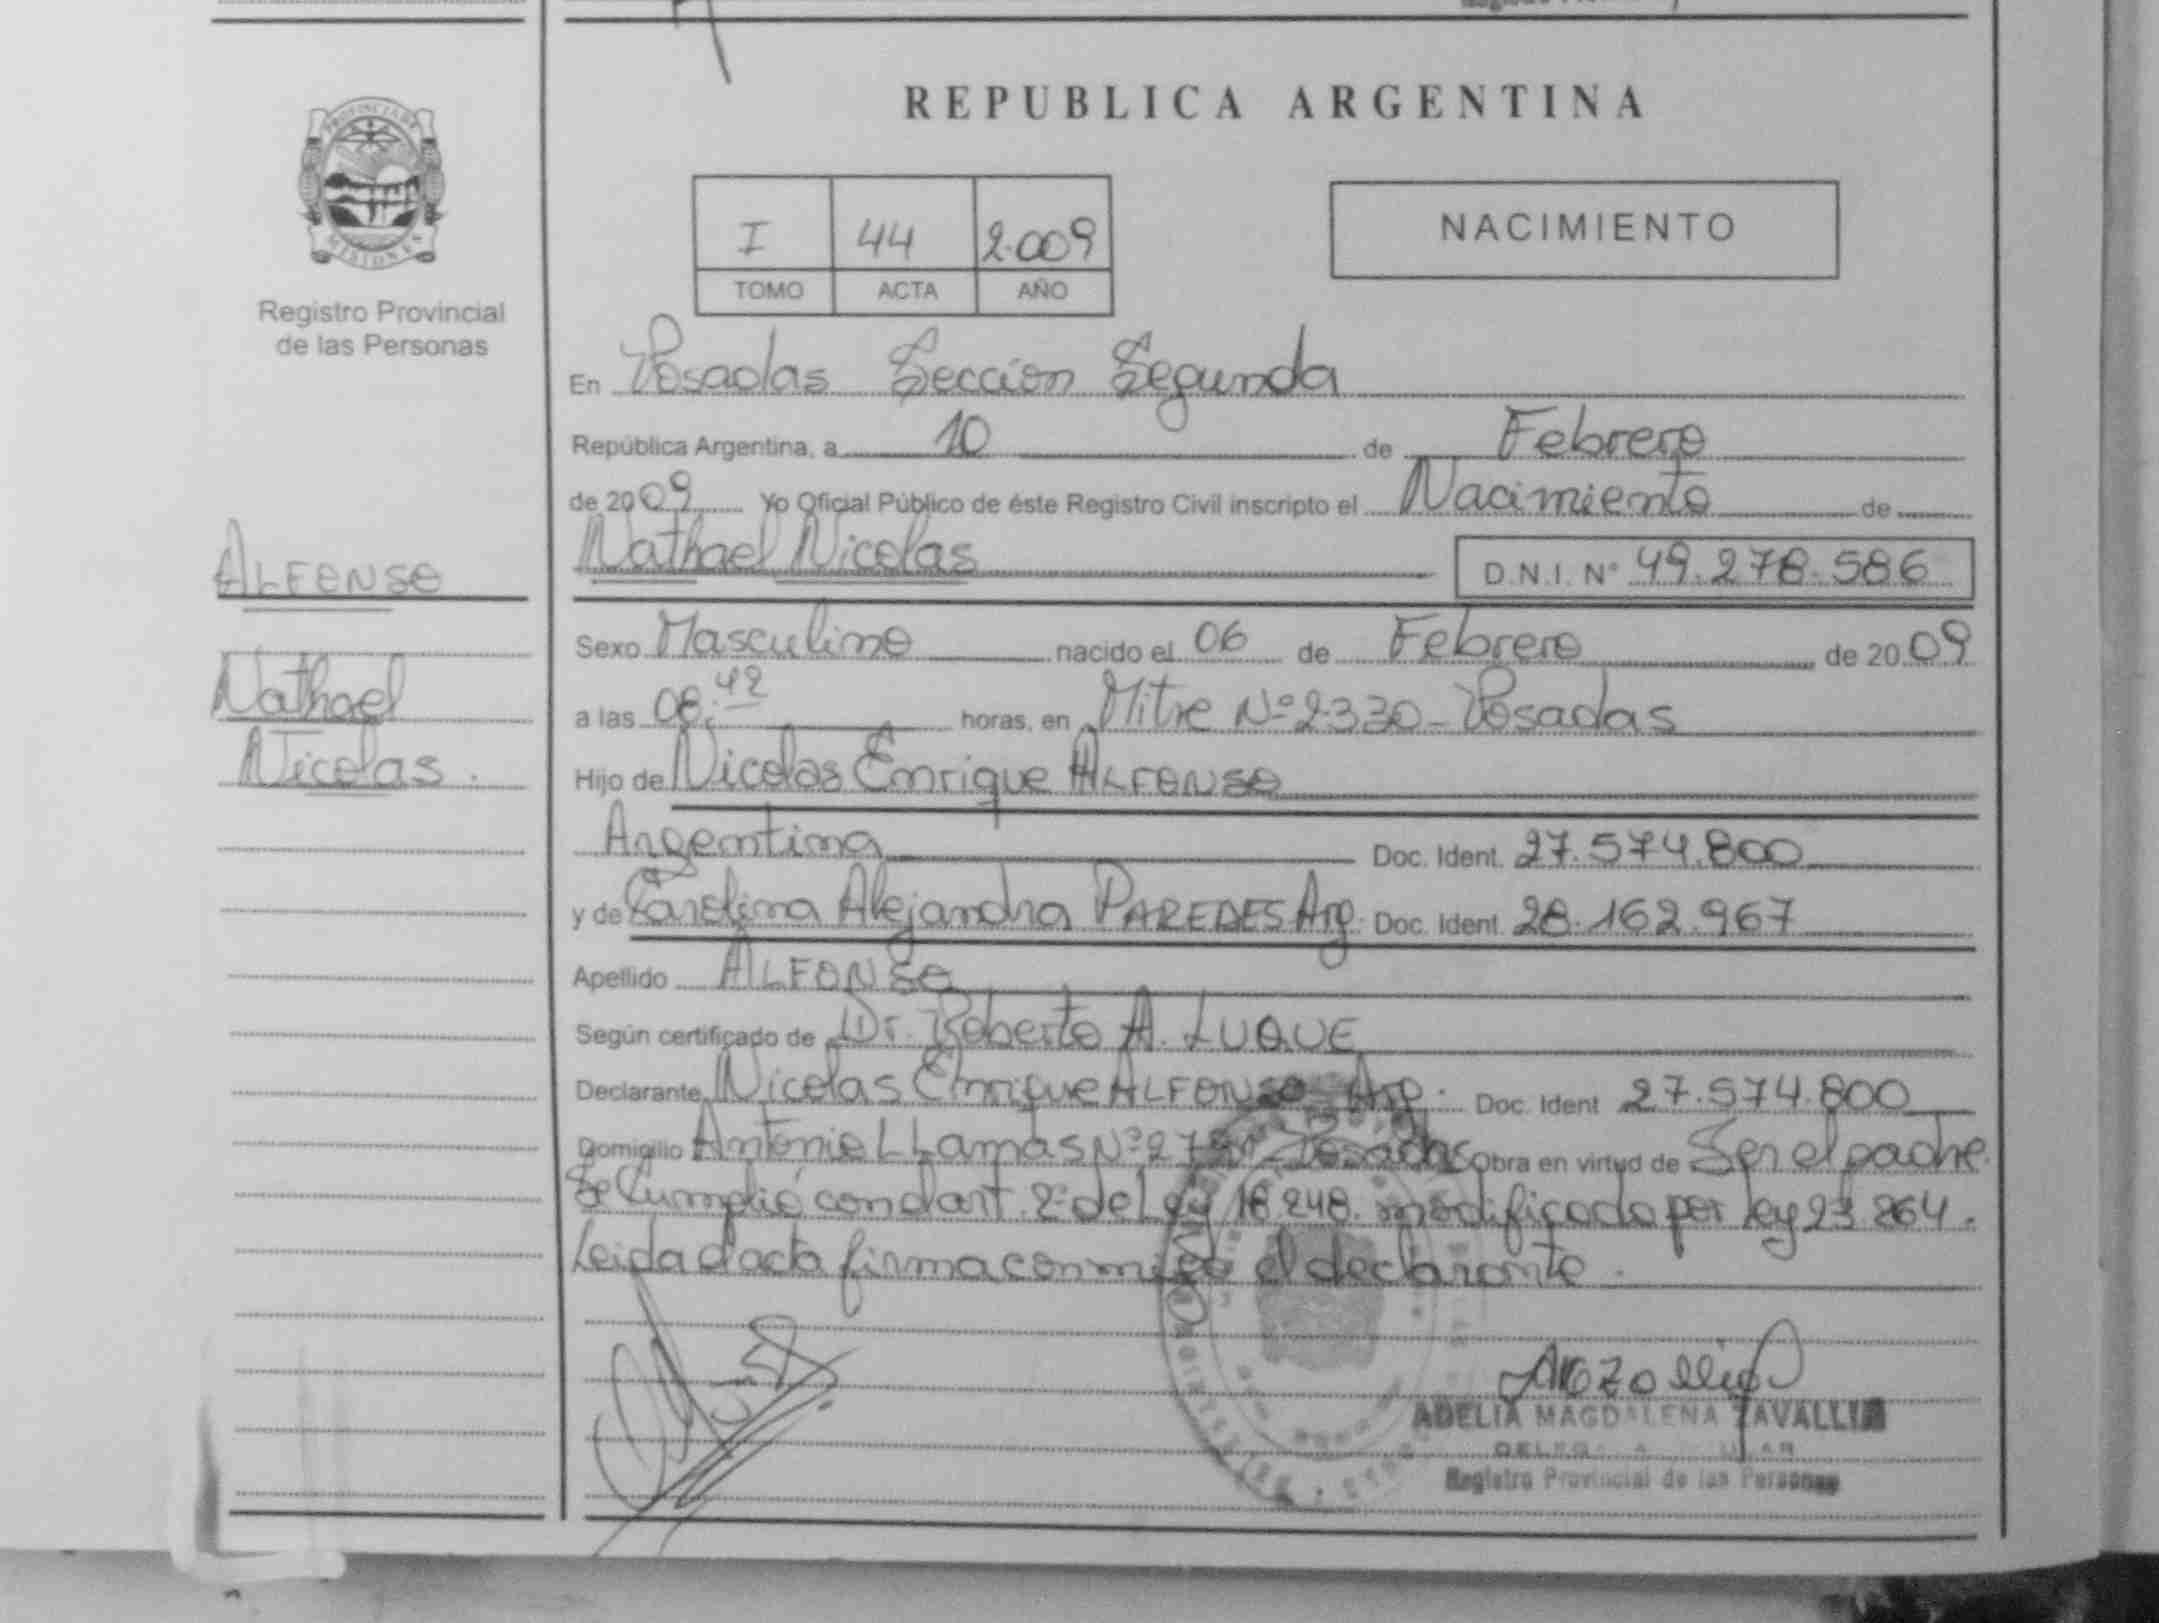 REPUBLICA ARGENTINA
PROVINCIA DE
MISIONES
Registro Provincial
de las Personas
I 44 2.009
TOMO ACTA AÑO
NACIMIENTO
En Posadas Sección Segunda
República Argentina, a 10 de Febrero
de 2009 Yo Oficial Público de éste Registro Civil inscripto el Nacimiento de
Nathael Nicolas D.N.I. N° 49.278.586
ALFONSO
Nathael
Nicolas.
Sexo Masculino nacido el 06 de Febrero de 2009
a las 08:42 horas, en Mitre Nº 2330 - Posadas
Hijo de Nicolas Enrique ALFONSO
Argentina Doc. Ident. 27.574.800
y de Carolina Alejandra PAREDES Arg. Doc. Ident. 28.162.967
Apellido ALFONSO
Según certificado de Dr. Roberto A. LUQUE
Declarante Nicolas Enrique ALFONSO Arg. Doc. Ident 27.574.800
Domicilio Antonio LLamas Nº Posadas Obra en virtud de Ser el padre.
Se Cumplió con el art. 2º de Ley 18.248. modificado por ley 23.264.
Leida el acta firma conmigo el declarante.
ADELIA MAGDALENA ZAVALLIA
Registro Provincial de las Personas